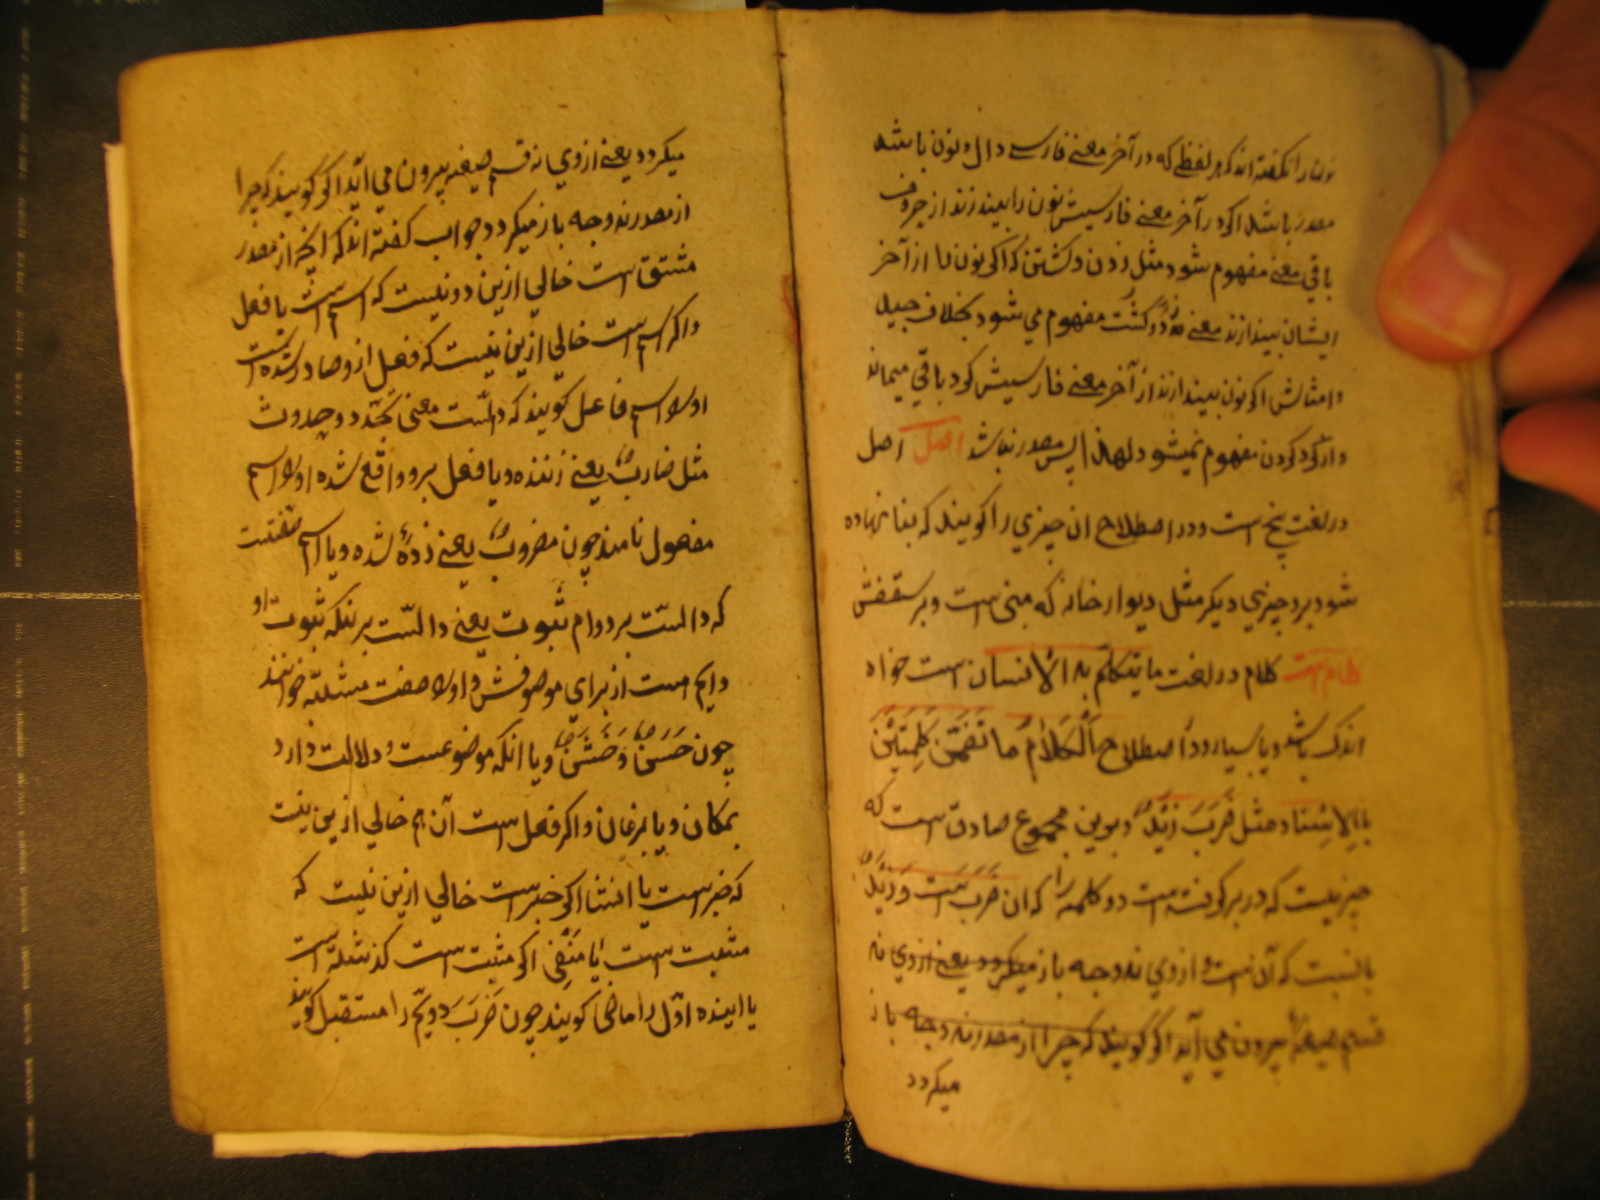 را نگفته‌اند که هر لفظی که در آخر معنی فارسی دال و نون باشد
مصدر باشد اگر در آخر معنی فارسیش نون را بیندازند از حروف
باقی معنی مفهوم شود مثل زدن و کشتن که اگر نون را از آخر
ایشان بیندازند معنی زد و کشت مفهوم می شود بخلاف جید
و امثالش اگر نون بیندازند از آخر معنی فارسیش گرد باقی میماند
و از گرد گردن مفهوم نمیشود لهذا پس مصدر نباشد اصل اصل
در لغت بیخ است و در اصطلاح آن چیزی را گویند که بنا نهاده
شود برو چیزی دیگر مثل دیوار خانه که مبنی است و بر سقفش
کلام است کلام در لغت ما یتکلم به الانسان است خواه
اندک باشد و یا بسیار و در اصطلاح اَلْکَلَامُ مَا تَضَمَّنَ کَلِمَتَیْنِ
بِالاِسْنَاد مثل ضَرَبَ زَیْدٌ و برین مجموع صادق است که
چیزیست که در بر گرفته است دو کلمه را که آن ضَرَبَ است وَ زَیْدٌ
بالنسبت که آن است و از وی نه وجه باز میگردد یعنی از وی نه
قسم صیغه بیرون می آید اگر گویند که چرا از مصدر نه وجه باز
میگردد
میگردد یعنی از وی نه قسم صیغه بیرون می آید اگر گویند که چرا
از مصدر نه وجه باز میگردد جواب گفته اند که آنچه از مصدر
مشتق است خالی ازین دو نیست که اسم است یا فعل
و اگر اسم است خالی ازین نیست که فعل ازو صادر شده است
او را اسم فاعل گویند که دالست معنی تجدد و حدوث
مثل ضاربٌ یعنی زننده و یا فعل برو واقع شده او را اسم
مفعول نامند چون مضروبٌ یعنی زدهٔ شده و یا اسم صفتست
که دالست بر دوام ثبوت یعنی دالست برینکه ثبوت او
دایم است از برای موصوفش و او را صفت مشبّهه خوانند
چون حَسَنٌ وَ خَشِنٌ و یا آنکه موضوعست و دلالت دارد
بمکان و یا بزمان و اگر فعل است آن هم خالی ازین نیست
که خبر است یا انشا اگر خبر است خالی ازین نیست که
مثبت است یا منفی اگر مثبت است گذشته است
یا آینده اوّل را ماضی گویند چون ضَرَبَ و دویّم را مستقبل گویند